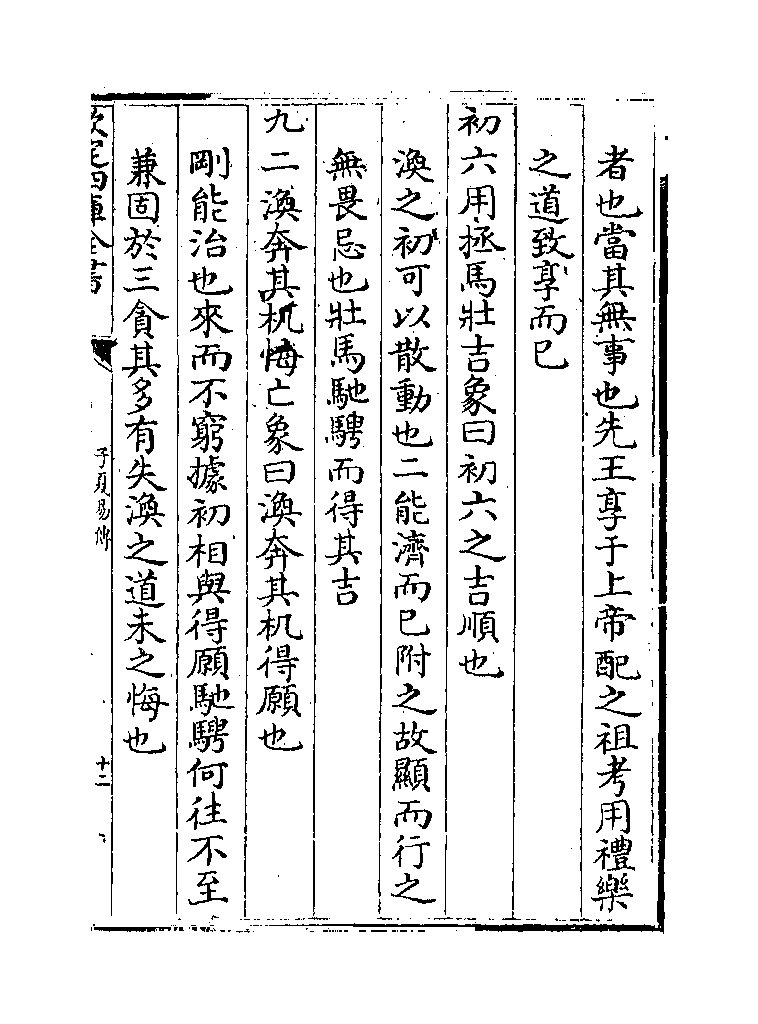 者也當其無事也先王享于上帝配之祖考用禮樂
之道致享而已
初六用拯馬壯吉象曰初六之吉順也
渙之初可以散動也二能濟而已附之故顯而行之
無畏忌也壯馬馳騁而得其吉
九二渙奔其机悔亡象曰渙奔其机得願也
剛能治也來而不窮據初相與得願馳騁何往不至
兼固於三貪其多有失渙之道未之悔也
欽定四庫全書
子夏易傳
十二